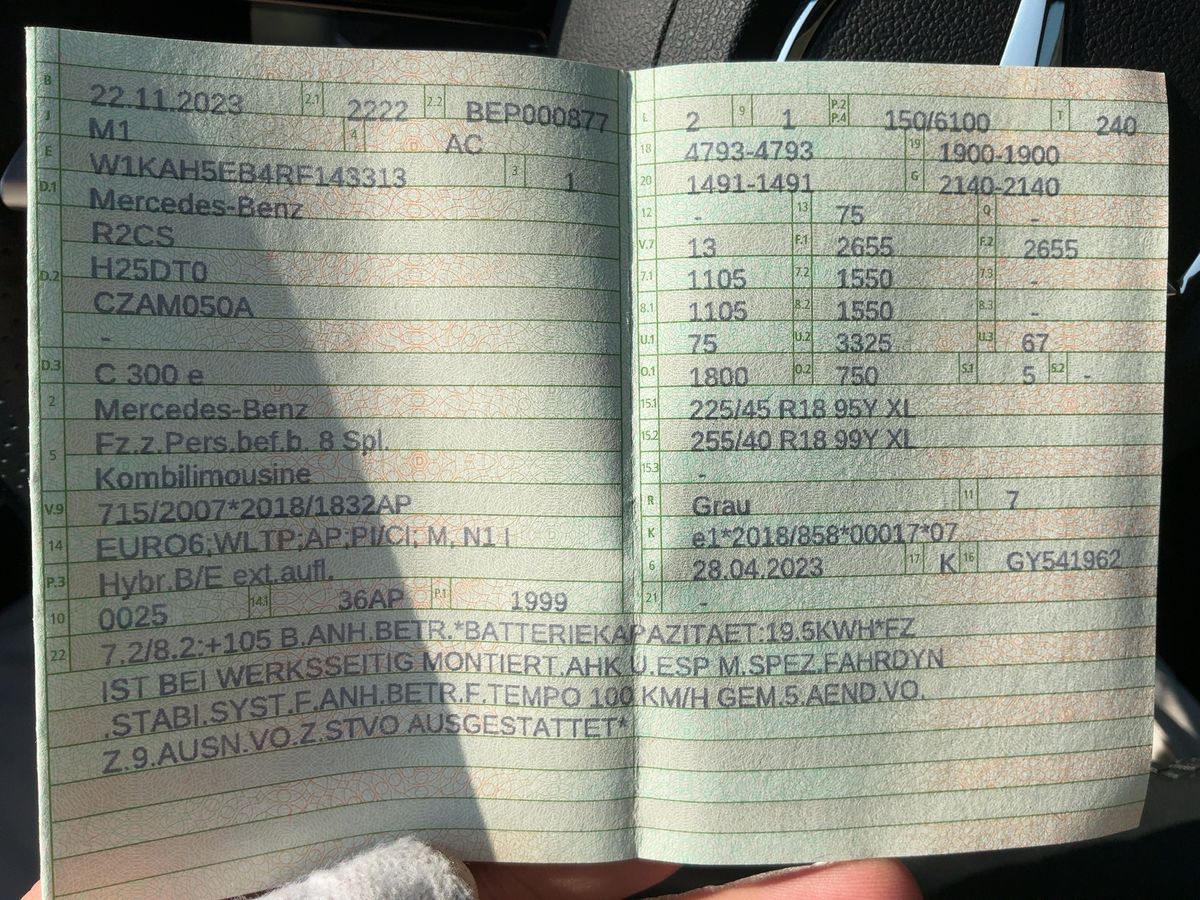 B 22.11.2023 2.1 2222 2.2 BEP000877
J M1 4 AC
E W1KAH5EB4RF143313 3 1
D.1 Mercedes-Benz
R2CS
D.2 H25DT0
CZAM050A
-
D.3 C 300 e
2 Mercedes-Benz
5 Fz.z.Pers.bef.b. 8 Spl.
Kombilimousine
V.9 715/2007*2018/1832AP
14 EURO6;WLTP;AP;PI/CI; M, N1 I
P.3 Hybr.B/E ext.aufl.
10 0025 14.1 36AP P.1 1999
L 2 9 1 P.2 P.4 150/6100 T 240
18 4793-4793 19 1900-1900
20 1491-1491 G 2140-2140
12 - 13 75 Q -
V.7 13 F.1 2655 F.2 2655
7.1 1105 7.2 1550 7.3 -
8.1 1105 8.2 1550 8.3 -
U.1 75 U.2 3325 U.3 67
O.1 1800 O.2 750 S.1 5 S.2 -
15.1 225/45 R18 95Y XL
15.2 255/40 R18 99Y XL
15.3 -
R Grau 11 7
K e1*2018/858*00017*07
6 28.04.2023 17 K 16 GY541962
21 -
22 7.2/8.2:+105 B.ANH.BETR.*BATTERIEKAPAZITAET:19.5KWH*FZ
IST BEI WERKSSEITIG MONTIERT.AHK U.ESP M.SPEZ.FAHRDYN
.STABI.SYST.F.ANH.BETR.F.TEMPO 100 KM/H GEM.5.AEND.VO.
Z.9.AUSN.VO.Z.STVO AUSGESTATTET*